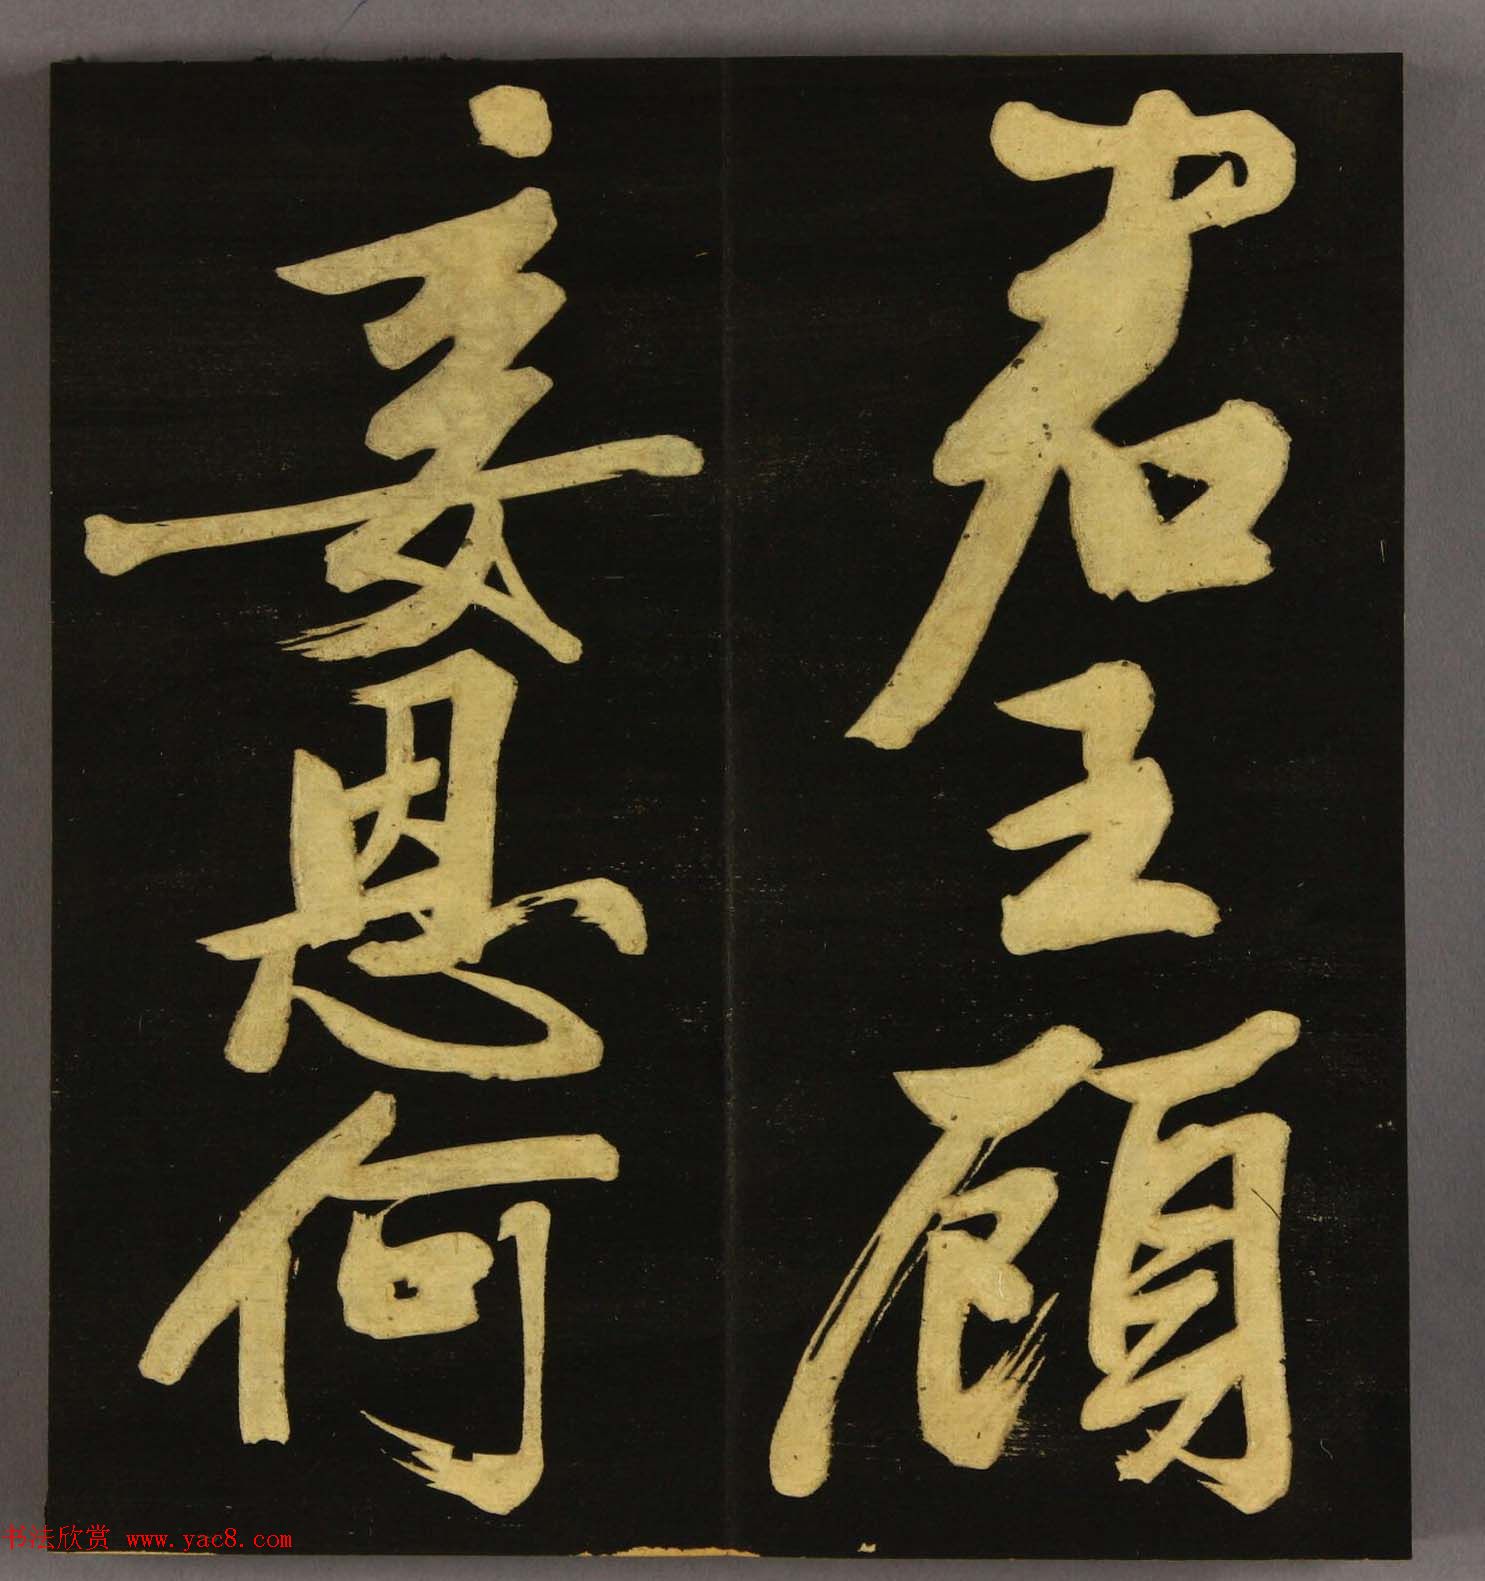 君王顧
妾恩何
书法欣赏 www.yac8.com